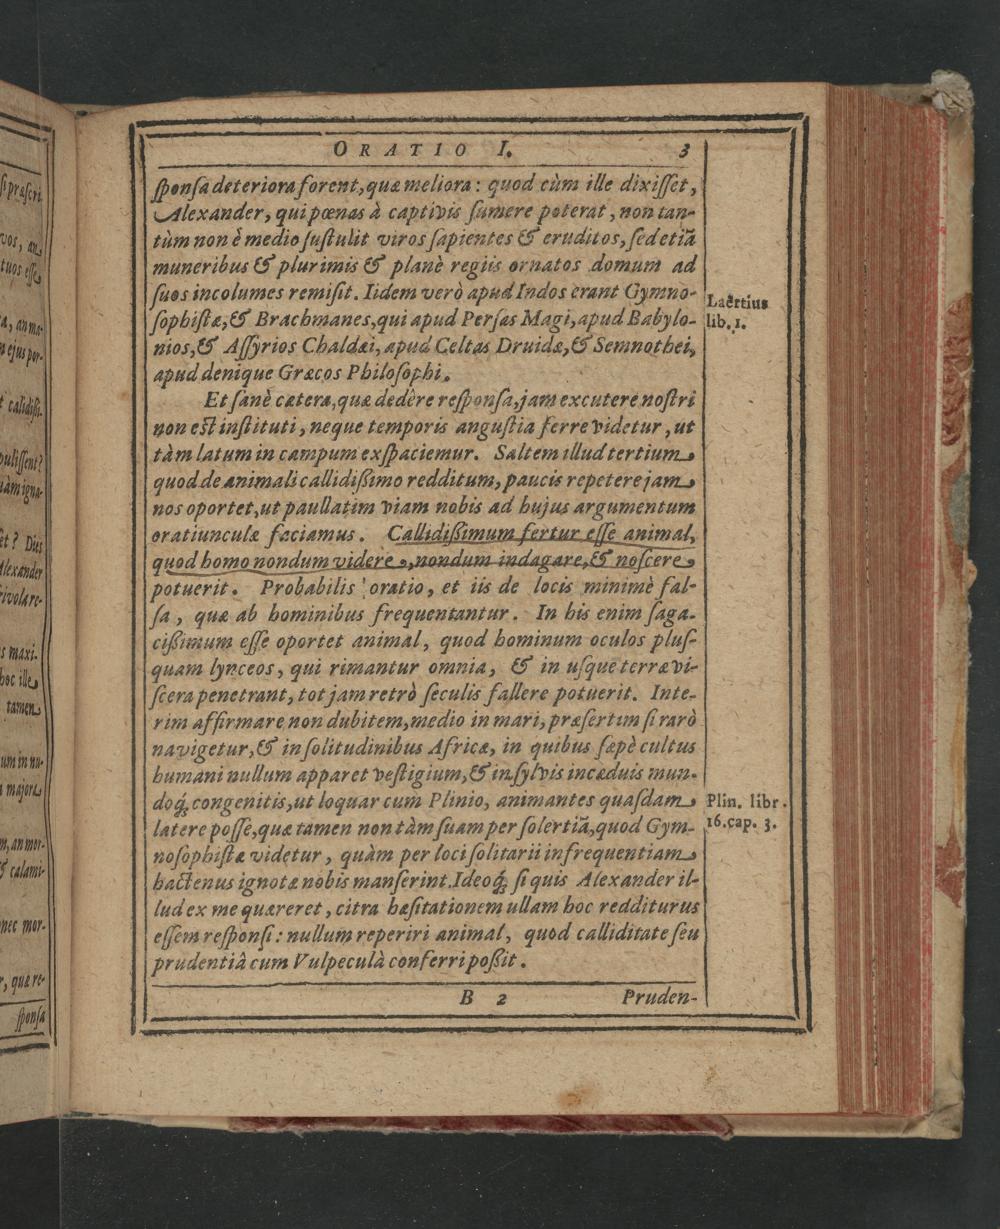 ORATIO I. 3
ſponſa deteriora forent, quæ meliora: quod cùm ille dixiſſet,
Alexander, qui pœnas à captivis ſumere poterat, non tan-
tùm non è medio ſuſtulit viros ſapientes & eruditos, ſed etiã
muneribus & plurimis & planè regiis ornatos domum ad
ſuos incolumes remiſit. Iidem verò apud Indos erant Gymno-
ſophiſtæ, & Brachmanes, qui apud Perſas Magi, apud Babylo-
nios, & Aſſyrios Chaldæi, apud Celtas Druidæ, & Semnothei,
apud denique Græcos Philoſophi.
Laërtius
lib. 1.
Et ſanè cætera, quæ dedêre reſponſa, jam excutere noſtri
non eſt inſtituti, neque temporis anguſtia ferre videtur, ut
tàm latum in campum exſpaciemur. Saltem illud tertium
quod de animali callidißimo redditum, paucis repetere jam
nos oportet, ut paullatim viam nobis ad hujus argumentum
oratiunculæ faciamus. Callidißimum fertur eſſe animal,
quod homo nondum videre, nondum indagare, & noſcere
potuerit. Probabilis oratio, et iis de locis minimè fal-
ſa, quæ ab hominibus frequentantur. In his enim ſaga-
cißimum eſſe oportet animal, quod hominum oculos pluſ-
quam lynceos, qui rimantur omnia, & in uſque terræ vi-
ſcera penetrant, tot jam retrò ſeculis fallere potuerit. Inte-
rim affirmare non dubitem, medio in mari, præſertim ſi rarò
navigetur, & in ſolitudinibus Africæ, in quibus ſæpè cultus
humani nullum apparet veſtigium, & in ſylvis incæduis mun-
doq́; congenitis, ut loquar cum Plinio, animantes quaſdam
latere poſſe, quæ tamen non tàm ſuam per ſolertiã, quod Gym-
noſophiſtæ videtur, quàm per loci ſolitarii infrequentiam
hactenus ignotæ nobis manſerint. Ideoq́; ſi quis Alexander il-
lud ex me quæreret, citra hæſitationem ullam hoc redditurus
eſſem reſponſi: nullum reperiri animal, quod calliditate ſeu
prudentiâ cum Vulpeculâ conferri poßit.
Plin. libr.
16. cap. 3.
B 2 Pruden-